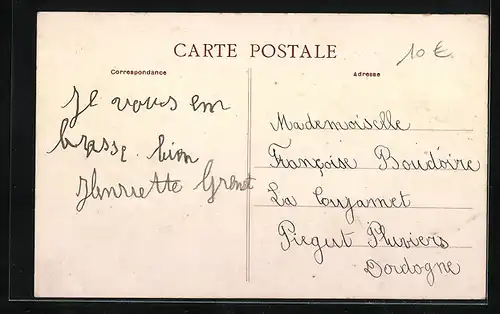 CARTE POSTALE
10 €
Correspondance
Adresse
Je vous em
brasse. bien
Henriette Grenet
Mademoiselle
Françoise Boudoire
La
Piegut Pluviers
Dordogne